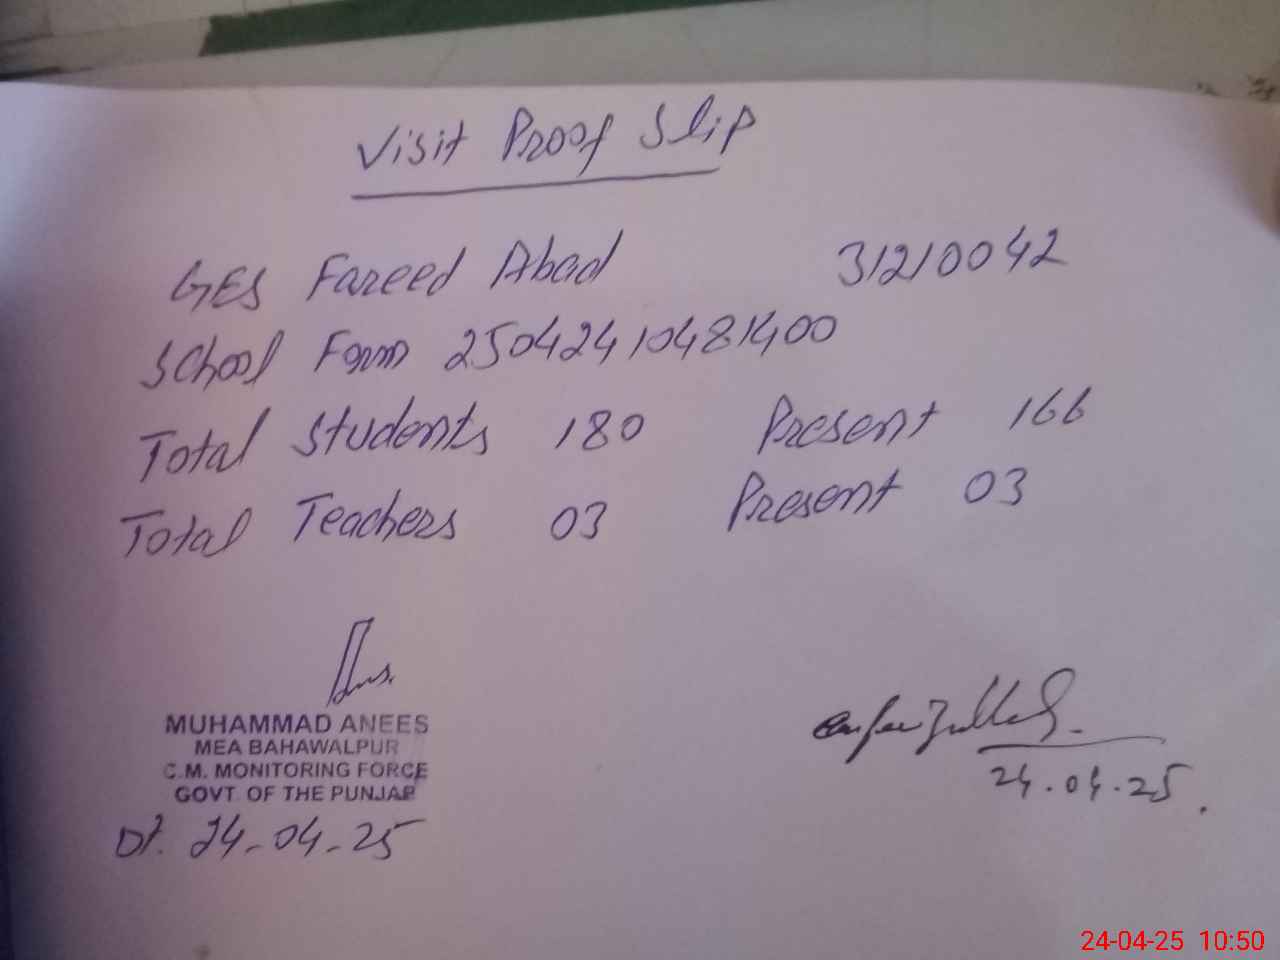 Visit Proof Slip
GES Fareed Abad 31210042
School Form 25042410481400
Total Students 180 Present 166
Total Teachers 03 Present 03
MUHAMMAD ANEES
MEA BAHAWALPUR
C.M. MONITORING FORCE
GOVT. OF THE PUNJAB
Dt. 24-04-25
24.04.25
24-04-25 10:50